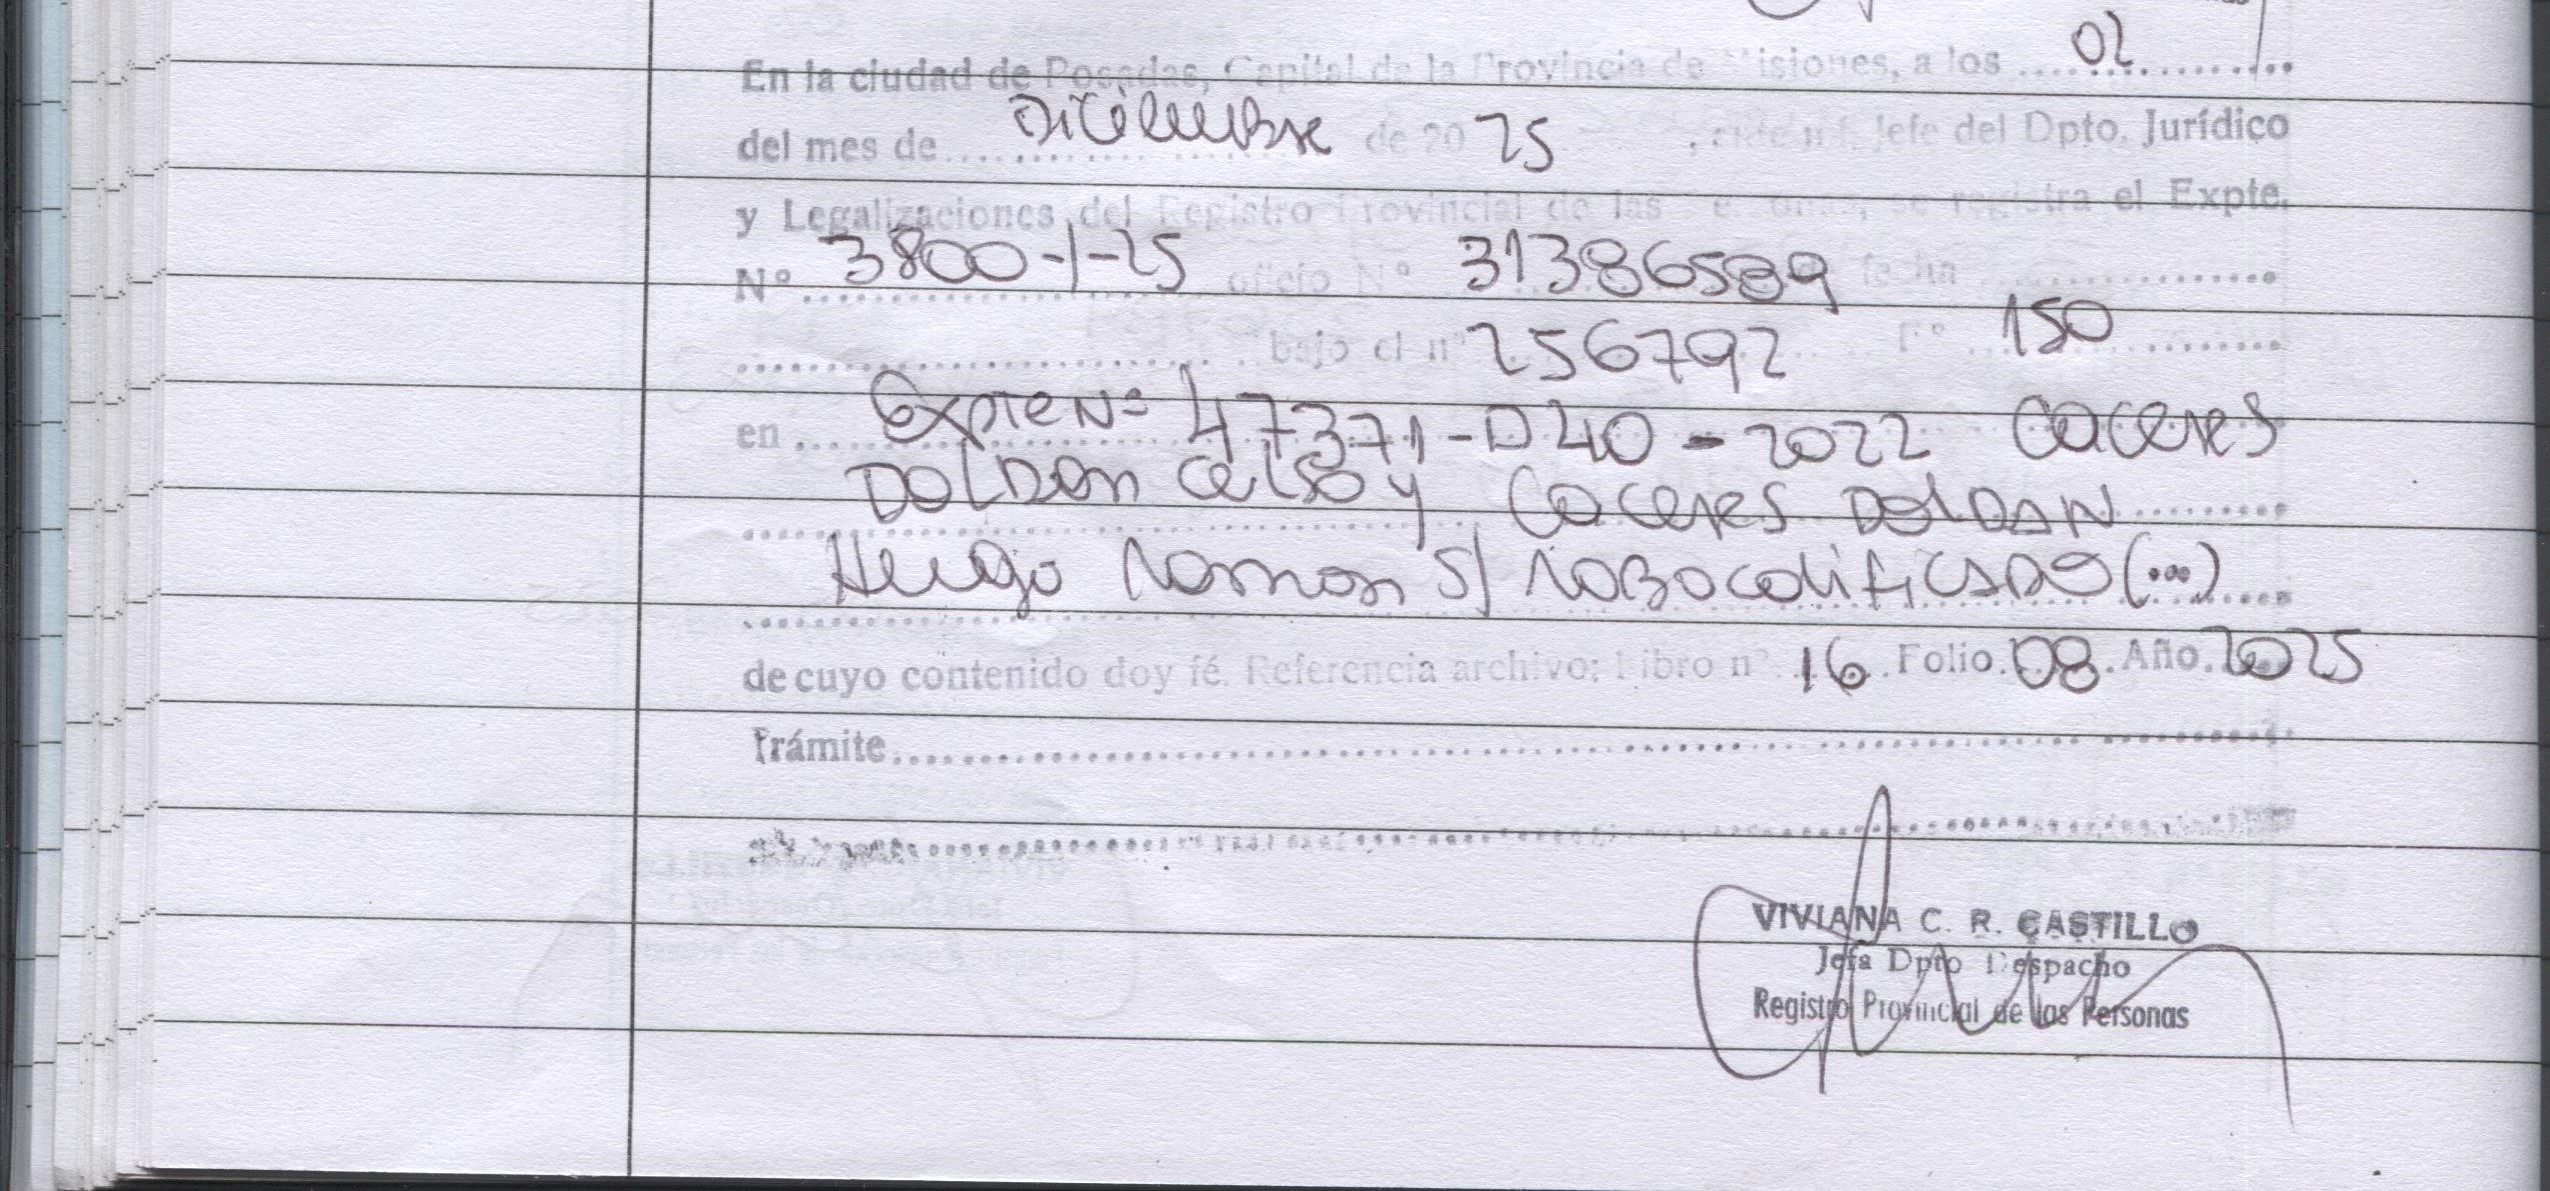 En la ciudad de Posadas, Capital de la Provincia de Misiones, a los ..... 02 .....
del mes de ..... Diciembre ..... de 20 25 ....., el Jefe del Dpto. Jurídico
y Legalizaciones del Registro Provincial de las Personas, se registra el Expte.
Nº ..... 3800-1-25 ..... oficio Nº 31386589 fecha .....
..... bajo el nº 256792 ..... Fº ..... 150 .....
en ..... Expte Nº 47371-D40-2022 Caceres
Doldan Celso y Caceres Doldan
Hugo Ramon S/ Robo calificado (...)
de cuyo contenido doy fé. Referencia archivo: Libro nº 16 Folio 08 Año 2025
Trámite .....
VIVIANA C. R. CASTILLO
Jefa Dpto Despacho
Registro Provincial de las Personas